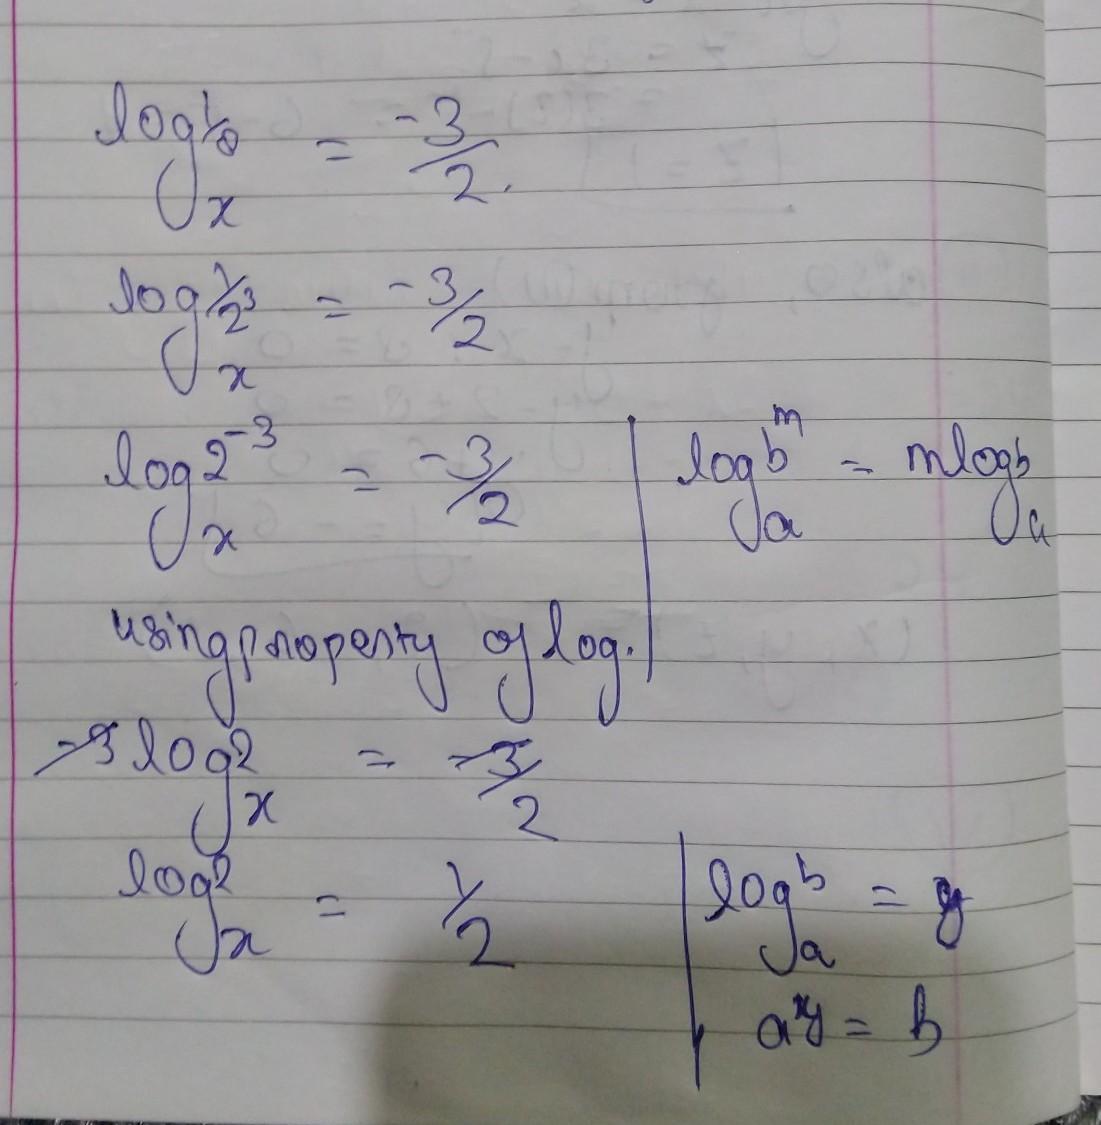 log_x 1/8 = -3/2.
log_x 1/2³ = -3/2
log_x 2⁻³ = -3/2 | log_a bᵐ = m log_a b
using property of log.
-3 log_x 2 = -3/2
log_x 2 = 1/2 | log_a b = y
aʸ = b